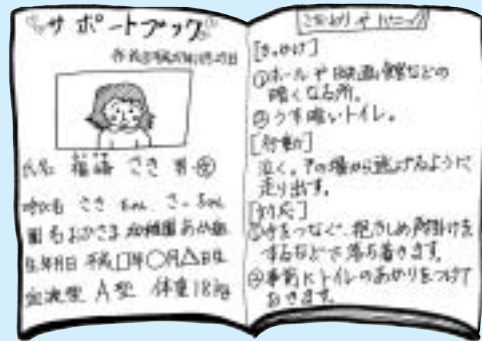 サポートブック
氏名 福語 さき 男・女
呼び名 さき ちゃん、さーちゃん
園名 おかさま幼稚園 あか組
生年月日 平成□年○月△日生
血液型 A型 体重18kg
こだわりやパニック
[きっかけ]
①ホールや映画館などの
暗くなる所。
②うす暗いトイレ。
[行動]
泣く。その場から逃げるように
走り出す。
[対応]
①手をつなぐ、抱きしめ声掛けを
するなどで落ち着きます。
②事前にトイレのあかりをつけて
おきます。